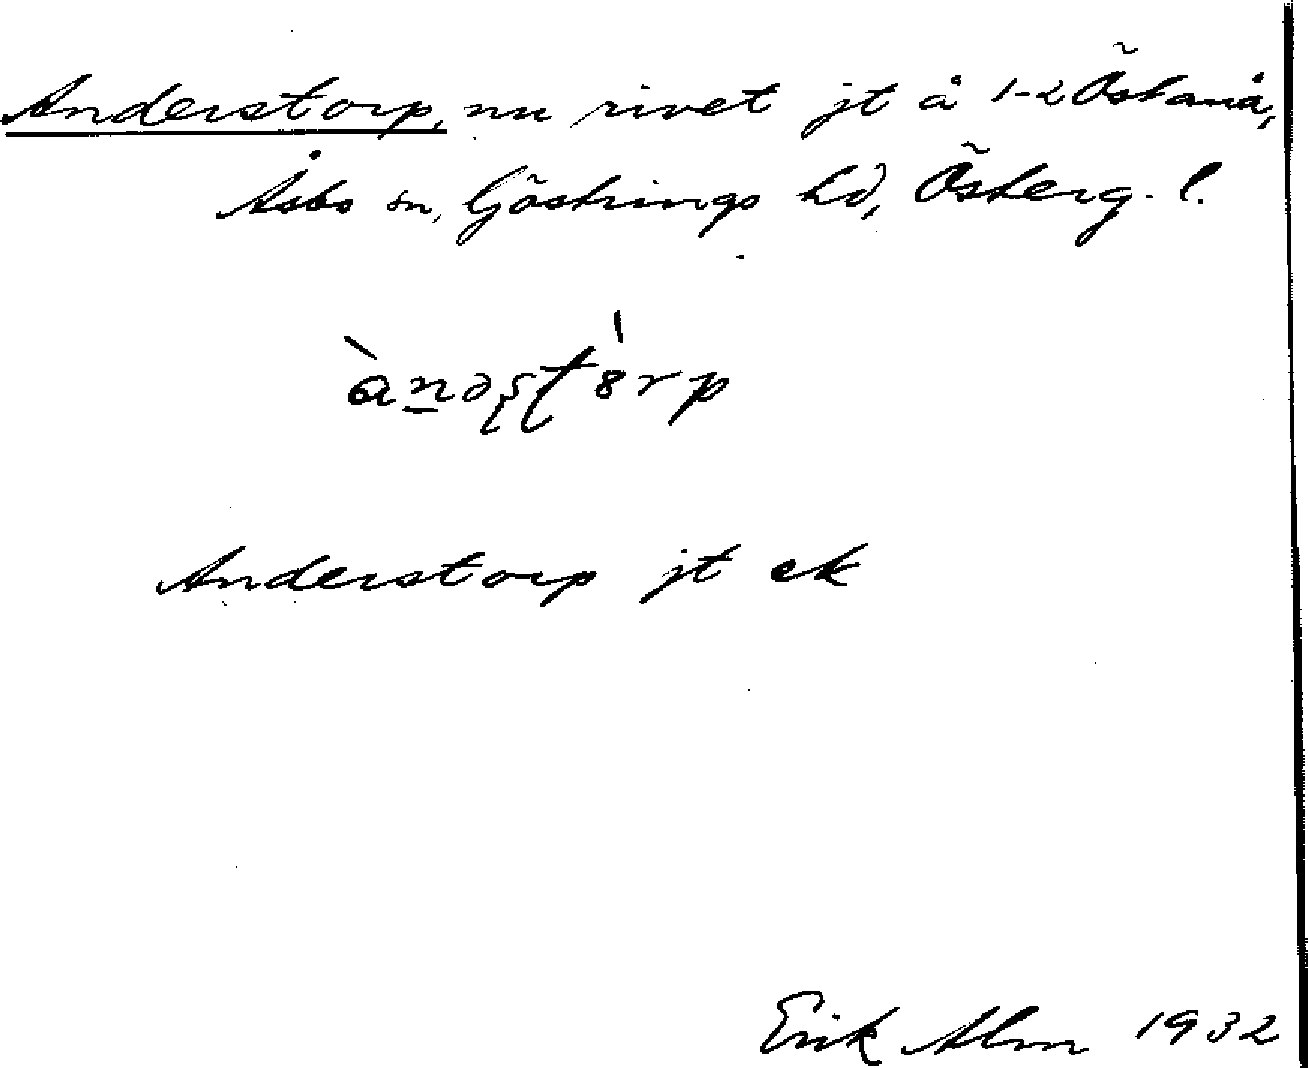 Anderstorp, nu rivet jt å 1-2 Östanå,
Åsbo sn, Göstrings hd, Österg. l.
Anderstorp jt ek
Erik Alm 1932